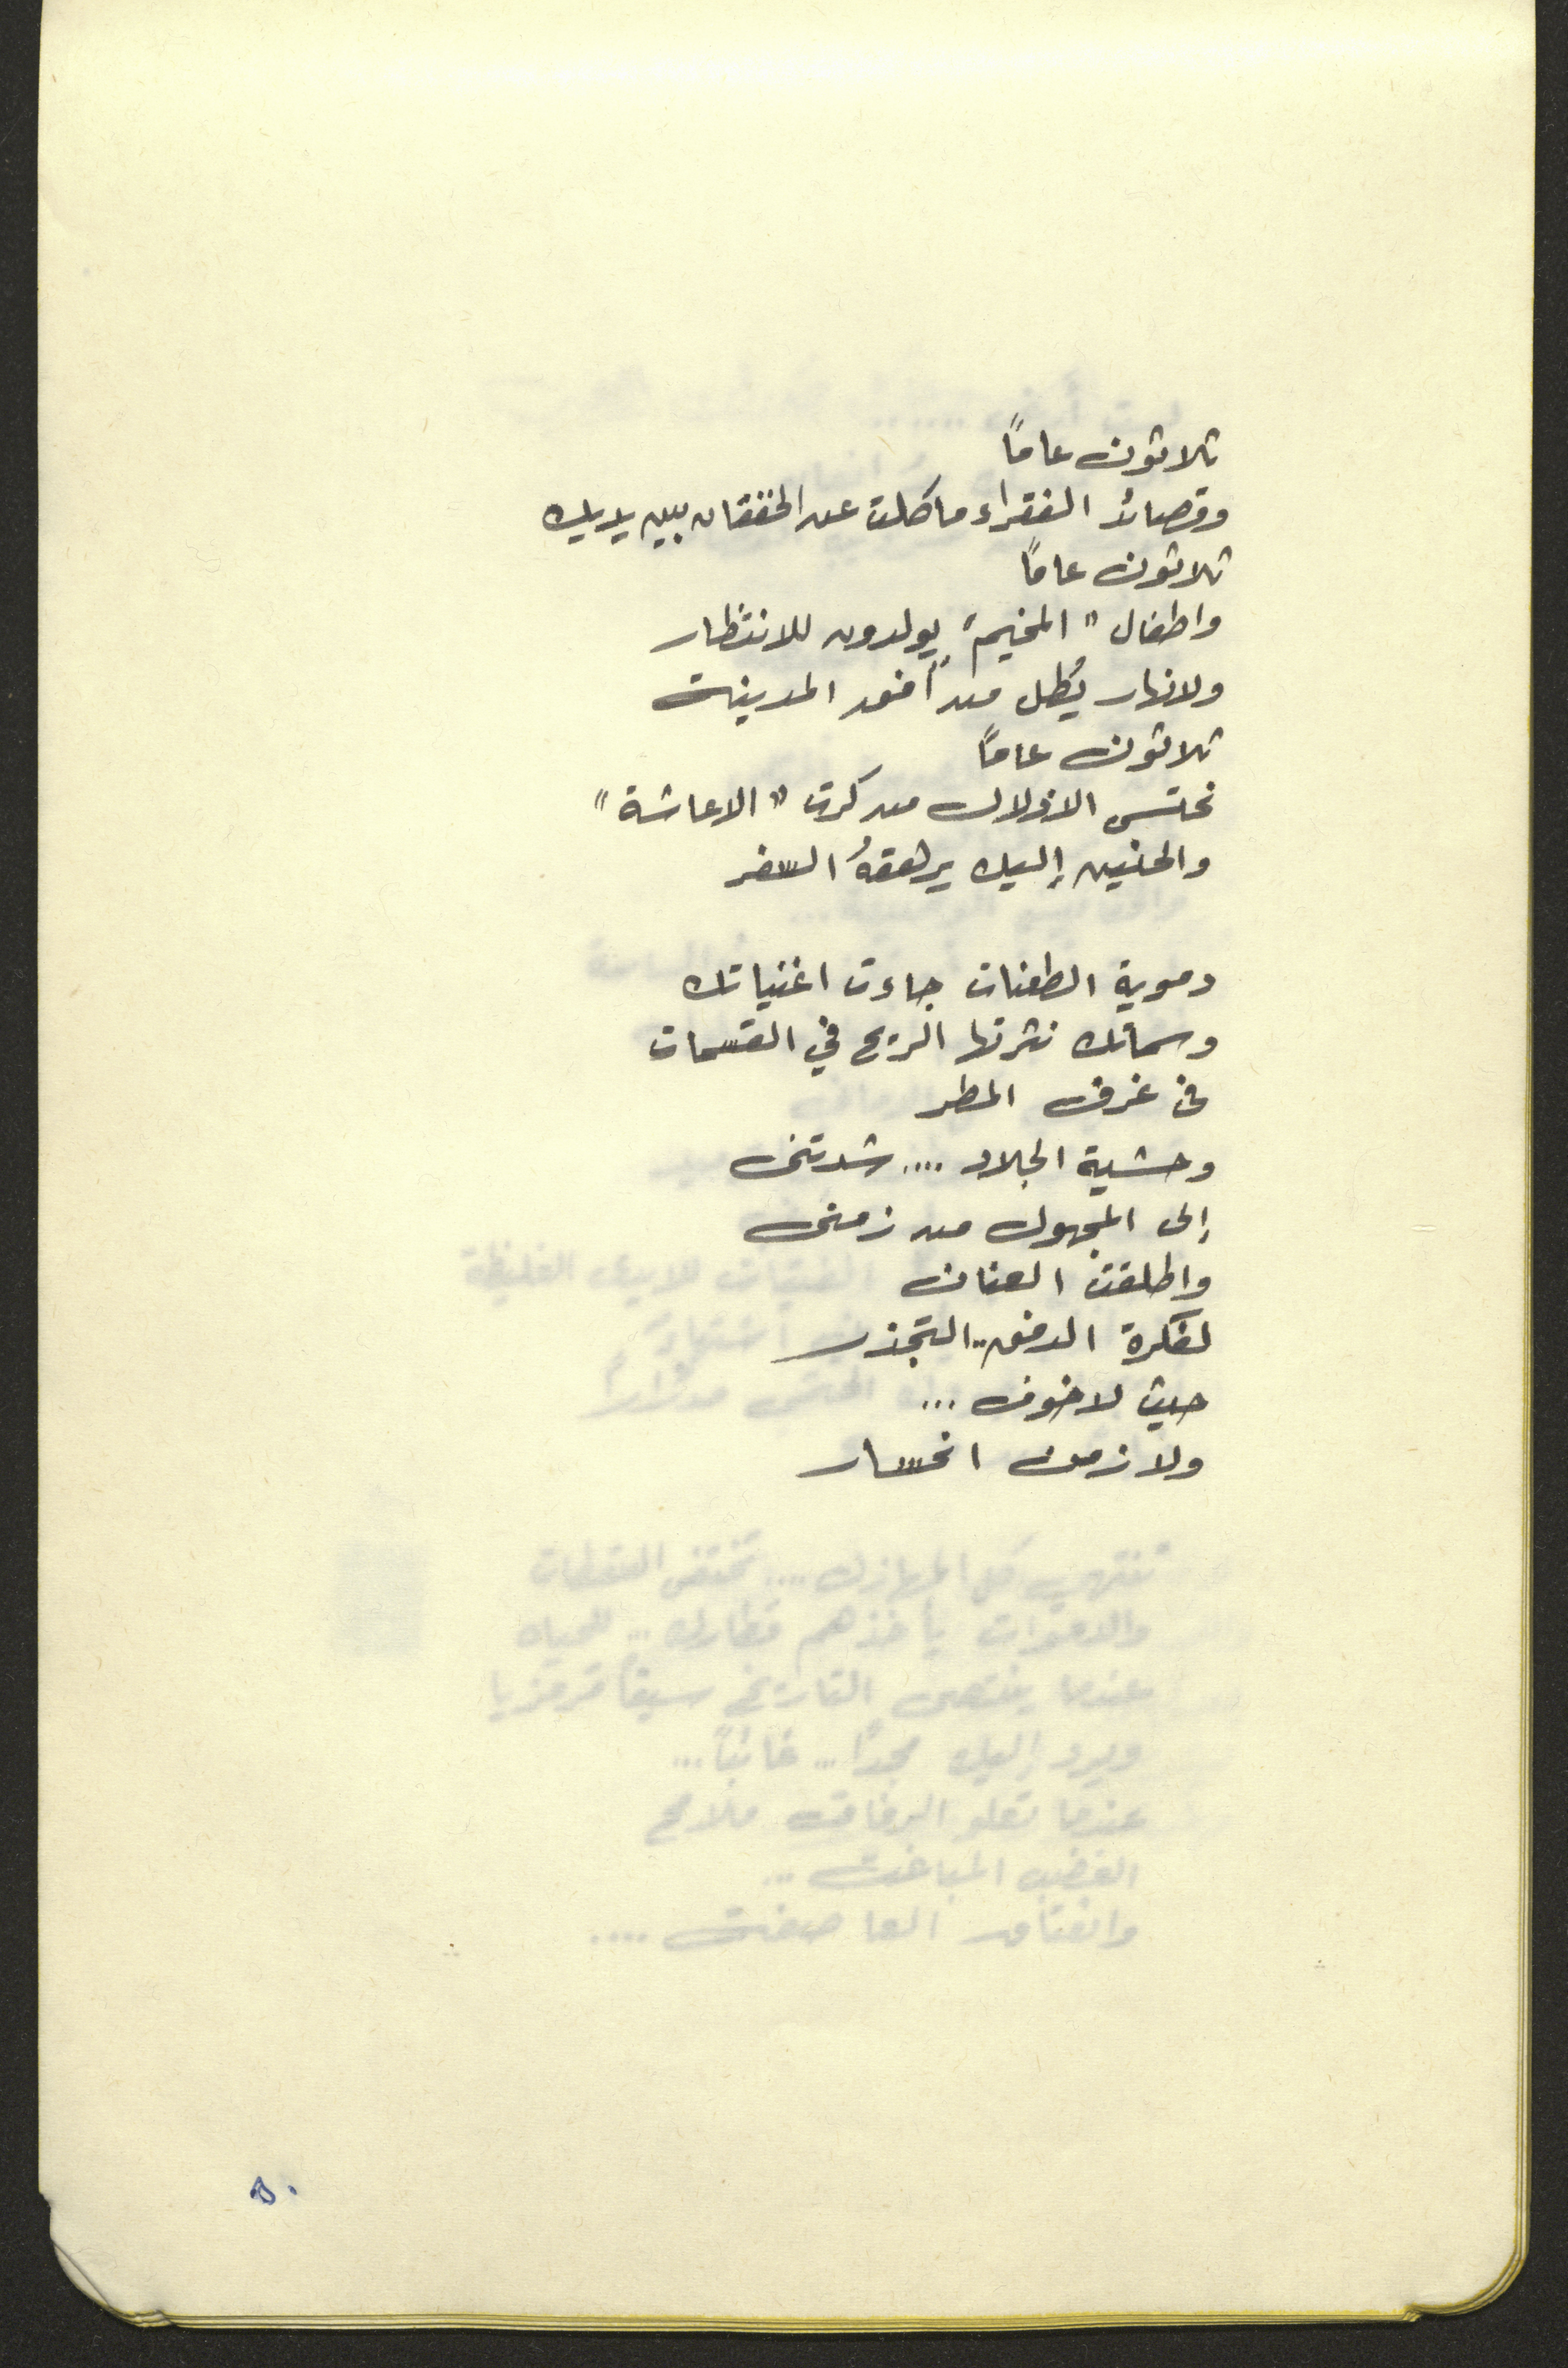 ثلاثون عاماً
وقصائد الفقراء ما كلت عن الخفقان بين يديك
ثلاثون عاماً
واطفال "المخيم" يولدون للانتظار
ولا نهار يُطل من أفق المدينة
ثلاثون عاماً
نحتسي الاذلال من كرت "الاعاشة"
والحنين إليك يرهقهُ السفر
دموية الطعنات جاءت اغنياتك
وسماتك نثرتها الريح في القسمات
في غرف المطر
وحشية الجلاد .... شدتني
إلى المجهول من زمني
واطلقت العنان
لفكرة الدفق.. التجذر
حيث لا خوف ...
ولا زمن انحسار
٥٠